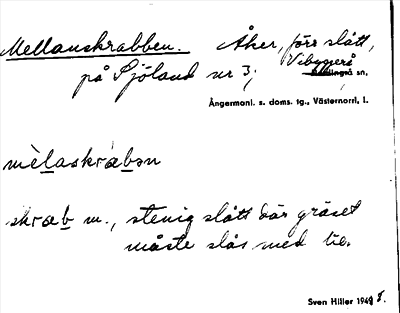 Mellanskrabben. Åker, förr slått,
på Sjöland nr 3; Vibyggerå
sn,
Ångermanl. s. doms. tg., Västernorrl, l.
mèlaskrabən
skræb m., stenig slått där gräset
måste slås med lie.
Sven Hiller 1945.